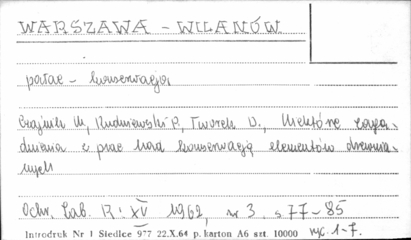 WARSZAWA - WILANÓW
pałac - konserwacja
Czajnik M., Rudniewski P., Tworek D., Niektóre zaga-
dnienia z prac nad konserwacją elementów drewnia-
nych
Ochr. Zab. R. XV 1962, nr 3. s. 77-85
Introdruk Nr 1 Siedlce 977 22.X.64 p. karton A6 szt. 10000 ryc. 1-7.